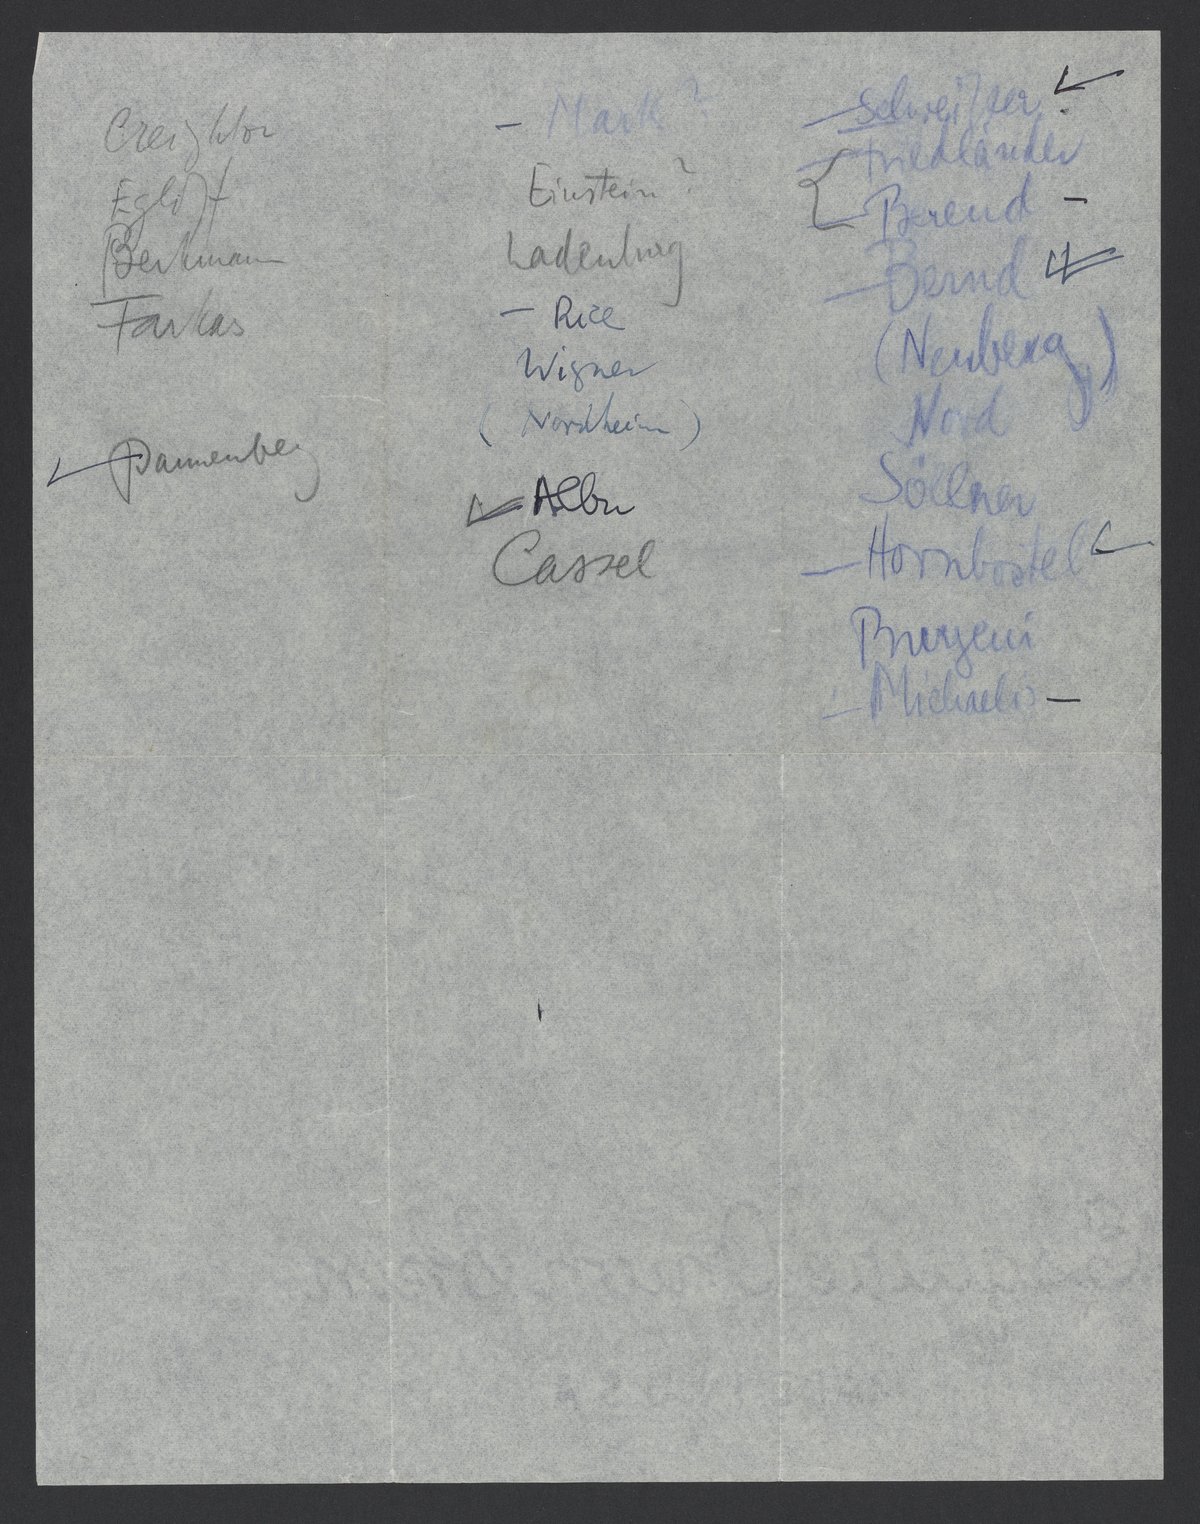 Creighton
Egli
Berkmann
Farkas
Dannenberg
– Mark ?
Einstein ?
Ladenburg
– Rice
Wigner
( Nordheim )
Albu
Cassel
– Schweitzer
– Friedländer
Berend –
– Bernd
(Neuberg)
Nord
Söllner
– Hornbostel
– Michaelis –